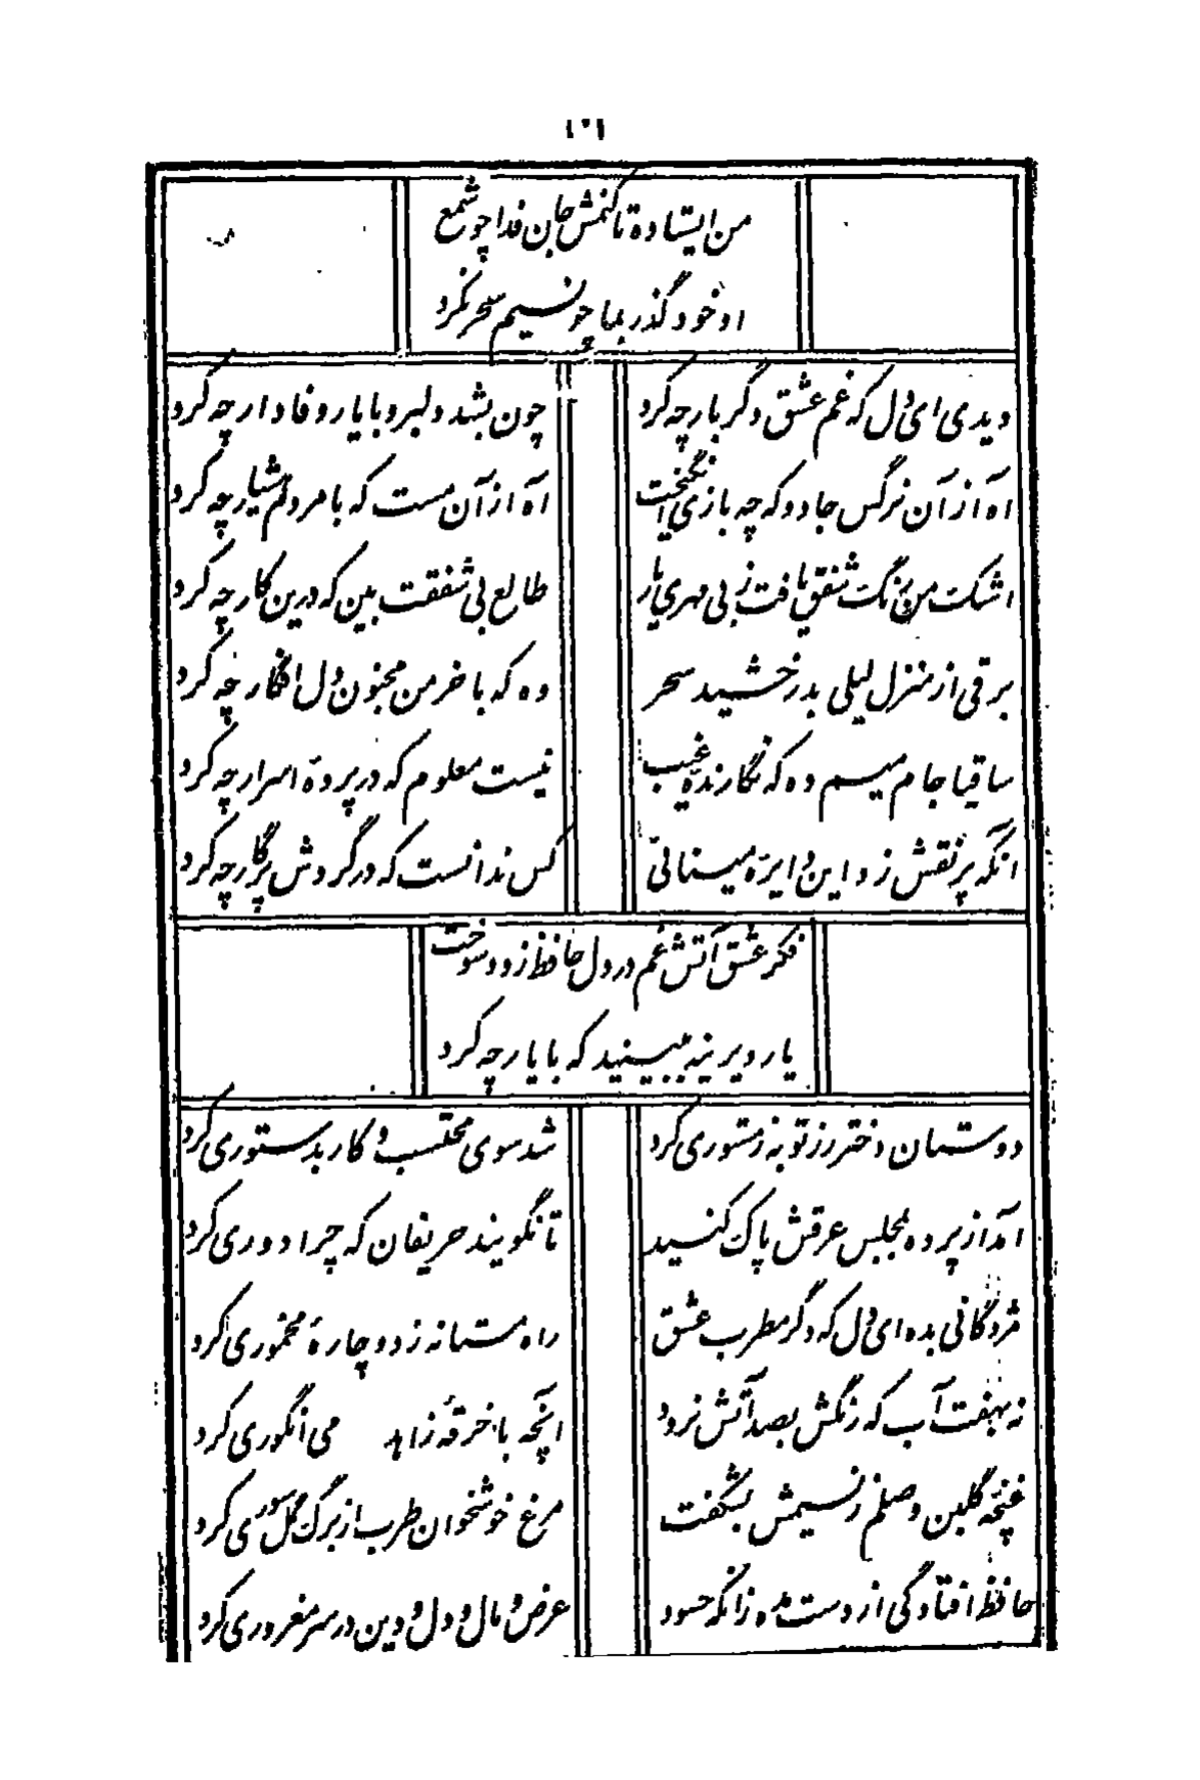 ۱۲۱
من ایستاده تا کنمش جان فدا چو شمع
او خود گذر بما چو نسیم سحر نکرد
دیدی ای دل که غم عشق دگر بار چه کرد
چون بشد دلبر و با یار وفادار چه کرد
اه از آن نرگس جادو که چه بازی انگیخت
آه از آن مست که با مردم هشیار چه کرد
اشک من رنگ شفق یافت ز بی مهری یار
طالع بی شفقت بین که درین کار چه کرد
برقی از منزل لیلی بدرخشید سحر
وه که با خرمن مجنون دل افگار چه کرد
ساقیا جام میم ده که نگارنده غیب
نیست معلوم که در پردهٔ اسرار چه کرد
انکه پر نقش زد این دایرهٔ مینائی
کس ندانست که در گردش پرگار چه کرد
فکر عشق آتش غم در دل حافظ زد و سوخت
یار دیرینه ببینید که با یار چه کرد
دوستان دختر رز توبه ز مستوری کرد
شد سوی محتسب و کار بدستوری کرد
آمد از پرده بمجلس عرقش پاک کنید
تا نگویند حریفان که چرا دوری کرد
مژدگانی بده ای دل که دگر مطرب عشق
راه مستانه زد و چارهٔ مخموری کرد
نه بهفت آب که رنگش بصد آتش نرود
انچه با خرقهٔ زاهد می انگوری کرد
غنچه گلبن وصلم ز نسیمش بشگفت
مرغ خوشخوان طرب از برگ گل سوری کرد
حافظ افتادگی از دست مده زانکه حسود
عرض و مال و دل و دین در سر مغروری کرد